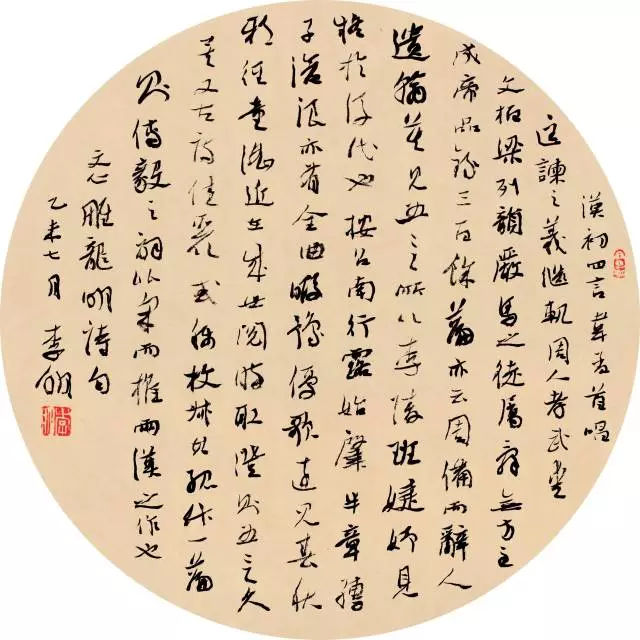 漢初四言韋孟首唱
匡諫之義继軌周人孝武愛
文柏梁列韻嚴馬之徒屬辞無方至
成帝品録三百餘篇亦云周備而辭人
遺翰莫見五言所以李陵班婕妤見
於後代也按召南行露始肇半章孺
子滄浪亦有全曲暇豫優歌遠見春秋
邪徑童謠近在成世閱時取證則五言久
矣又古詩佳麗或稱枚叔其孤竹一篇
則傅毅之詞比采而推兩漢之作也
文心雕龍明詩句
乙未七月李